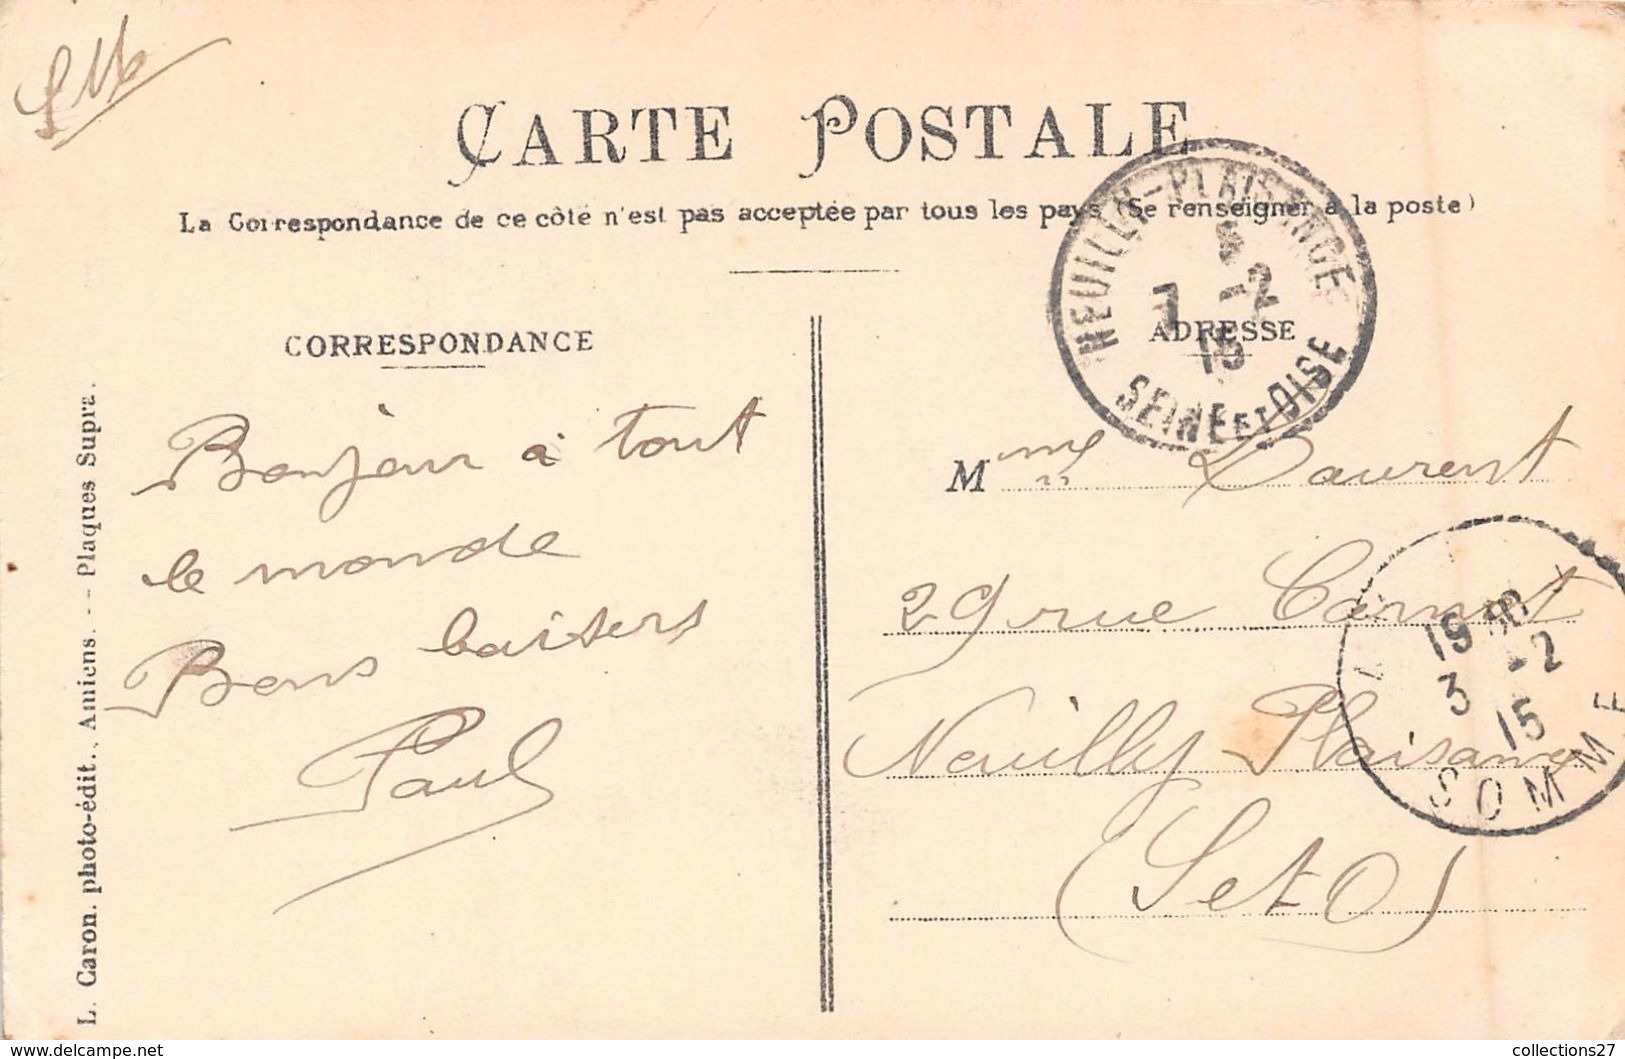 S M
CARTE POSTALE
La Correspondance de ce côté n'est pas acceptée par tous les pays (Se renseigner à la poste)
CORRESPONDANCE
Bonjour à tout
le monde
Bons baisers
Paul
L. Caron. photo-édit., Amiens. -- Plaques Supra.
NEUILLY-PLAISANCE
7 -2
15
SEINE ET OISE
ADRESSE
Mme Laurent
29 rue Carnot
Neuilly Plaisance
(S et O)
19
3 -2
15
SOMME
collections27